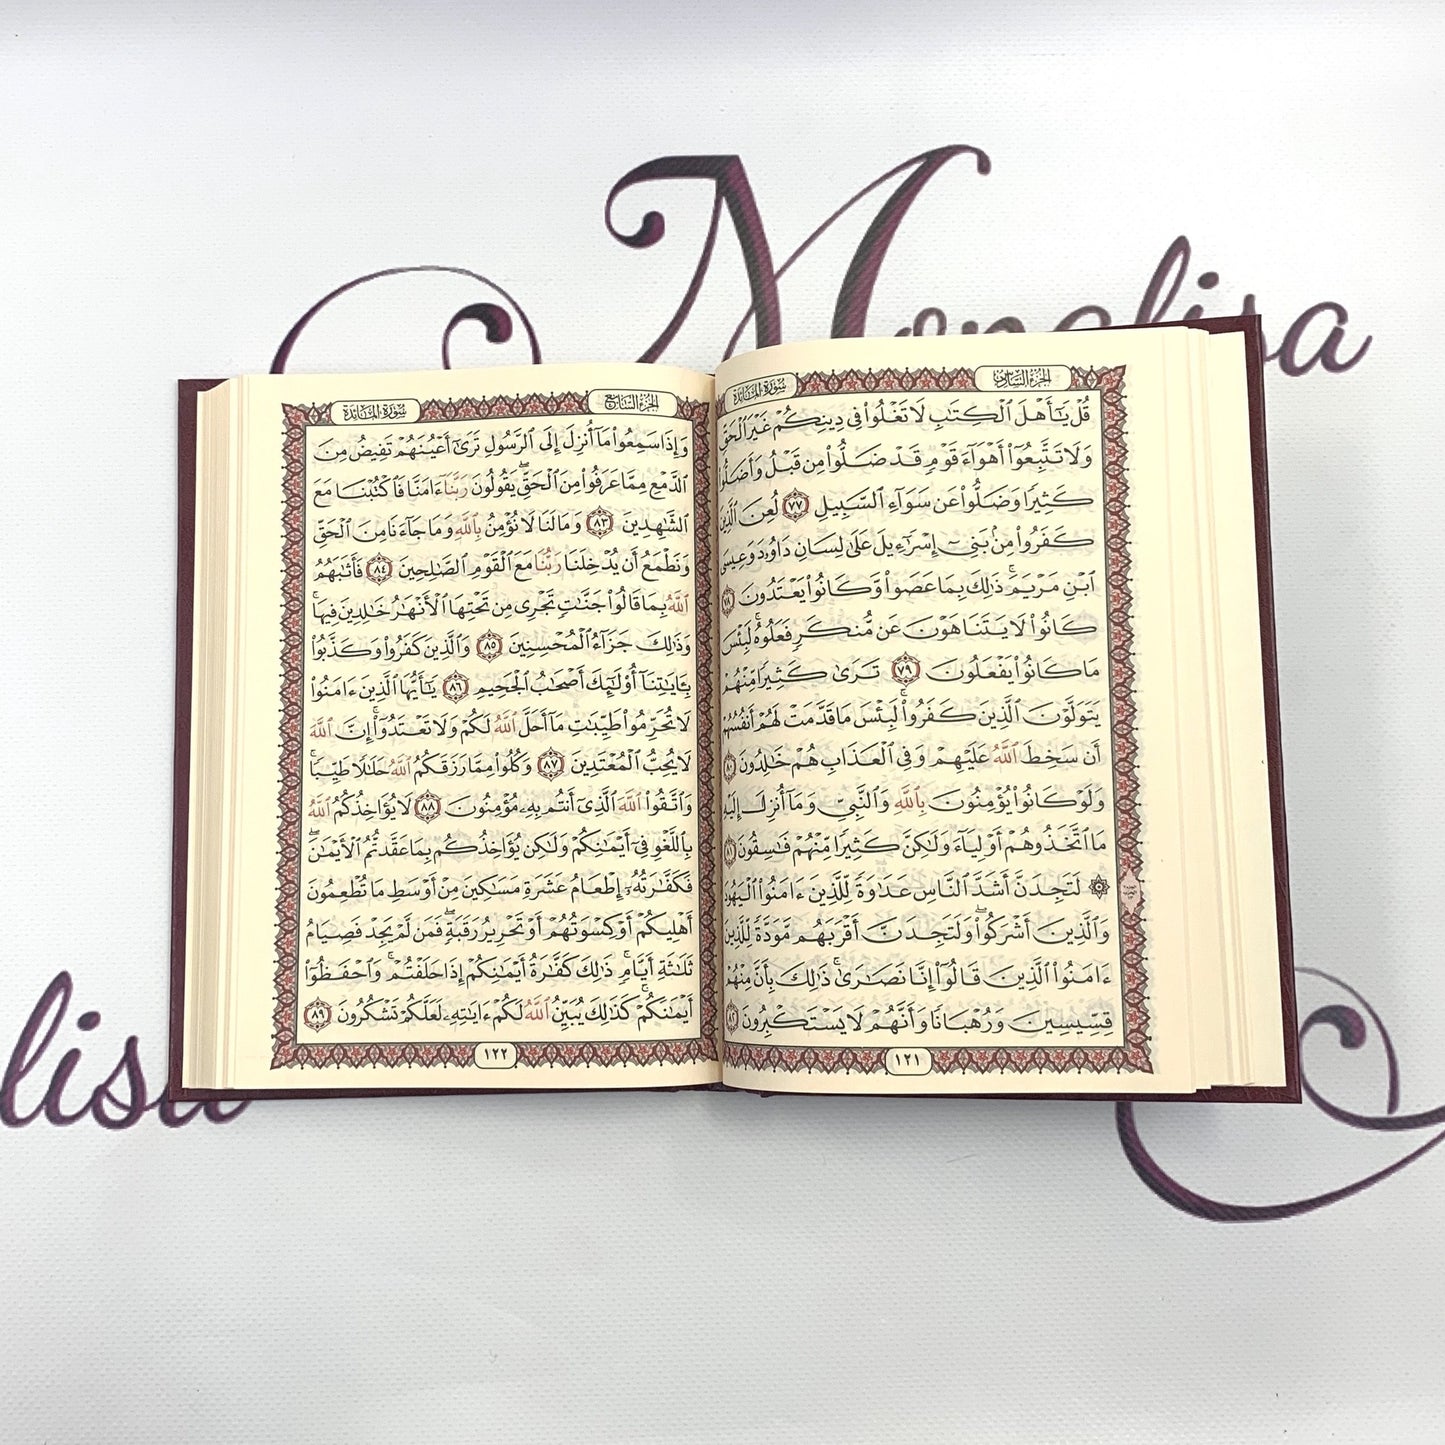 Monalisa
lisa
سورة المائدة
الجزء السادس
قُلْ يَٰٓأَهْلَ ٱلْكِتَٰبِ لَا تَغْلُوا۟ فِى دِينِكُمْ غَيْرَ ٱلْحَقِّ
وَلَا تَتَّبِعُوٓا۟ أَهْوَآءَ قَوْمٍ قَدْ ضَلُّوا۟ مِن قَبْلُ وَأَضَلُّوا۟
كَثِيرًا وَضَلُّوا۟ عَن سَوَآءِ ٱلسَّبِيلِ ٧٧ لُعِنَ ٱلَّذِينَ
كَفَرُوا۟ مِنۢ بَنِىٓ إِسْرَٰٓءِيلَ عَلَىٰ لِسَانِ دَاوُۥدَ وَعِيسَى
ٱبْنِ مَرْيَمَ ۚ ذَٰلِكَ بِمَا عَصَوا۟ وَّكَانُوا۟ يَعْتَدُونَ ٧٨
كَانُوا۟ لَا يَتَنَاهَوْنَ عَن مُّنكَرٍ فَعَلُوهُ ۚ لَبِئْسَ
مَا كَانُوا۟ يَفْعَلُونَ ٧٩ تَرَىٰ كَثِيرًا مِّنْهُمْ
يَتَوَلَّوْنَ ٱلَّذِينَ كَفَرُوا۟ ۚ لَبِئْسَ مَا قَدَّمَتْ لَهُمْ أَنفُسُهُمْ
أَن سَخِطَ ٱللَّهُ عَلَيْهِمْ وَفِى ٱلْعَذَابِ هُمْ خَٰلِدُونَ ٨٠
وَلَوْ كَانُوا۟ يُؤْمِنُونَ بِٱللَّهِ وَٱلنَّبِىِّ وَمَآ أُنزِلَ إِلَيْهِ
مَا ٱتَّخَذُوهُمْ أَوْلِيَآءَ وَلَٰكِنَّ كَثِيرًا مِّنْهُمْ فَٰسِقُونَ ٨١
۞ لَتَجِدَنَّ أَشَدَّ ٱلنَّاسِ عَدَٰوَةً لِّلَّذِينَ ءَامَنُوا۟ ٱلْيَهُودَ
وَٱلَّذِينَ أَشْرَكُوا۟ ۖ وَلَتَجِدَنَّ أَقْرَبَهُم مَّوَدَّةً لِّلَّذِينَ
ءَامَنُوا۟ ٱلَّذِينَ قَالُوٓا۟ إِنَّا نَصَٰرَىٰ ۚ ذَٰلِكَ بِأَنَّ مِنْهُمْ
قِسِّيسِينَ وَرُهْبَانًا وَأَنَّهُمْ لَا يَسْتَكْبِرُونَ ٨٢
١٢١
سورة المائدة
الجزء السابع
وَإِذَا سَمِعُوا۟ مَآ أُنزِلَ إِلَى ٱلرَّسُولِ تَرَىٰٓ أَعْيُنَهُمْ تَفِيضُ مِنَ
ٱلدَّمْعِ مِمَّا عَرَفُوا۟ مِنَ ٱلْحَقِّ ۖ يَقُولُونَ رَبَّنَآ ءَامَنَّا فَٱكْتُبْنَا مَعَ
ٱلشَّٰهِدِينَ ٨٣ وَمَا لَنَا لَا نُؤْمِنُ بِٱللَّهِ وَمَا جَآءَنَا مِنَ ٱلْحَقِّ
وَنَطْمَعُ أَن يُدْخِلَنَا رَبُّنَا مَعَ ٱلْقَوْمِ ٱلصَّٰلِحِينَ ٨٤ فَأَثَٰبَهُمُ
ٱللَّهُ بِمَا قَالُوا۟ جَنَّٰتٍ تَجْرِى مِن تَحْتِهَا ٱلْأَنْهَٰرُ خَٰلِدِينَ فِيهَا ۚ
وَذَٰلِكَ جَزَآءُ ٱلْمُحْسِنِينَ ٨٥ وَٱلَّذِينَ كَفَرُوا۟ وَكَذَّبُوا۟
بِـَٔايَٰتِنَآ أُو۟لَٰٓئِكَ أَصْحَٰبُ ٱلْجَحِيمِ ٨٦ يَٰٓأَيُّهَا ٱلَّذِينَ ءَامَنُوا۟
لَا تُحَرِّمُوا۟ طَيِّبَٰتِ مَآ أَحَلَّ ٱللَّهُ لَكُمْ وَلَا تَعْتَدُوٓا۟ ۚ إِنَّ ٱللَّهَ
لَا يُحِبُّ ٱلْمُعْتَدِينَ ٨٧ وَكُلُوا۟ مِمَّا رَزَقَكُمُ ٱللَّهُ حَلَٰلًا طَيِّبًا ۚ
وَٱتَّقُوا۟ ٱللَّهَ ٱلَّذِىٓ أَنتُم بِهِۦ مُؤْمِنُونَ ٨٨ لَا يُؤَاخِذُكُمُ ٱللَّهُ
بِٱللَّغْوِ فِىٓ أَيْمَٰنِكُمْ وَلَٰكِن يُؤَاخِذُكُم بِمَا عَقَّدتُّمُ ٱلْأَيْمَٰنَ ۖ
فَكَفَّٰرَتُهُۥٓ إِطْعَامُ عَشَرَةِ مَسَٰكِينَ مِنْ أَوْسَطِ مَا تُطْعِمُونَ
أَهْلِيكُمْ أَوْ كِسْوَتُهُمْ أَوْ تَحْرِيرُ رَقَبَةٍ ۖ فَمَن لَّمْ يَجِدْ فَصِيَامُ
ثَلَٰثَةِ أَيَّامٍ ۚ ذَٰلِكَ كَفَّٰرَةُ أَيْمَٰنِكُمْ إِذَا حَلَفْتُمْ ۚ وَٱحْفَظُوٓا۟
أَيْمَٰنَكُمْ ۚ كَذَٰلِكَ يُبَيِّنُ ٱللَّهُ لَكُمْ ءَايَٰتِهِۦ لَعَلَّكُمْ تَشْكُرُونَ ٨٩
١٢٢